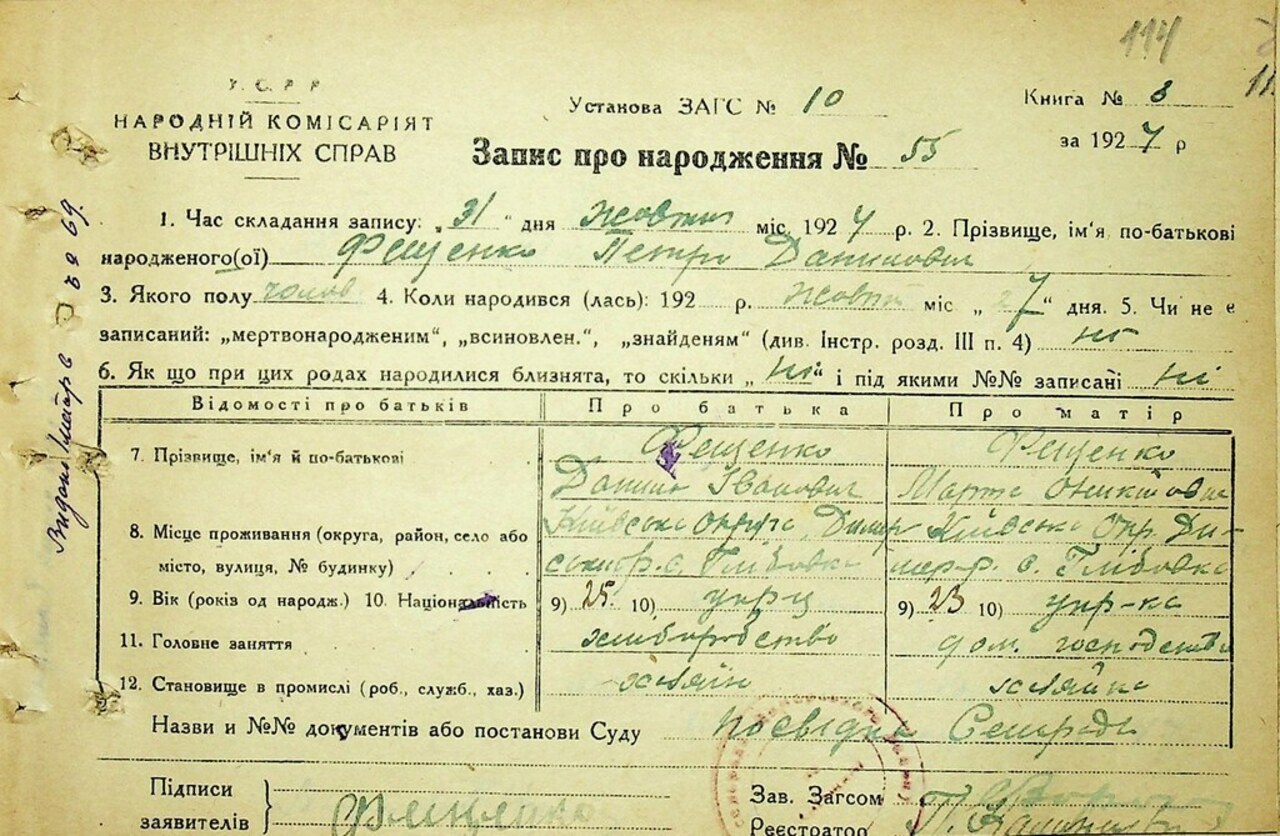 114
У. С. Р. Р.
НАРОДНІЙ КОМІСАРІЯТ
ВНУТРІШНІХ СПРАВ
Установа ЗАГС № 10
Книга № 3
за 1927 р
Запис про народження № 55
1. Час складання запису: „31“ дня жовтня міс. 1927 р. 2. Прізвище, ім'я по-батькові
народженого(ої) Фещенко Петро Данилович
3. Якого полу чолов 4. Коли народився (лась): 192 р. жовтн міс „27“ дня. 5. Чи не є
записаний: „мертвонародженим“, „всиновлен.“, „знайденям“ (див. Інстр. розд. III п. 4) ні
6. Як що при цих родах народилися близнята, то скільки „ні“ і під якими №№ записані ні
Відомості про батьків Про батька Про матір
7. Прізвище, ім'я й по-батькові Фещенко Фещенко
Данило Іванович Марта
8. Місце проживання (округа, район, село або Київська округа, Димер Київська Окр. Ди-
місто, вулиця, № будинку) ський р. с. Глібовка мер. р. с. Глібовка
9. Вік (років од народж.) 10. Національність 9) 25. 10) укр-ц 9) 23 10) укр-ка
11. Головне заняття хліборобство дом. господство
12. Становище в промислі (роб., служб., хаз.) хазяїн хазяйка
Назви и №№ документів або постанови Суду посвідка Сільради
Підписи
заявителів Фещенко
Зав. Загсом
Реєстратор